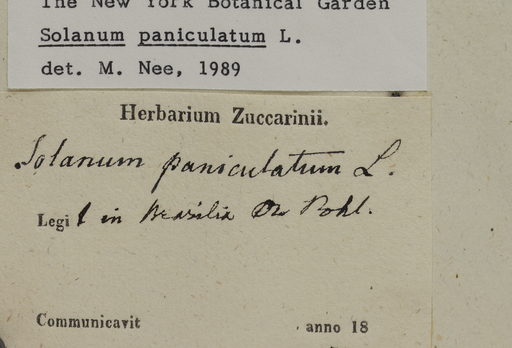 The New York Botanical Garden
Solanum paniculatum L.
det. M. Nee, 1989
Herbarium Zuccarinii.
Solanum paniculatum L.
Legit in Brasilia Dr Pohl.
Communicavit anno 18